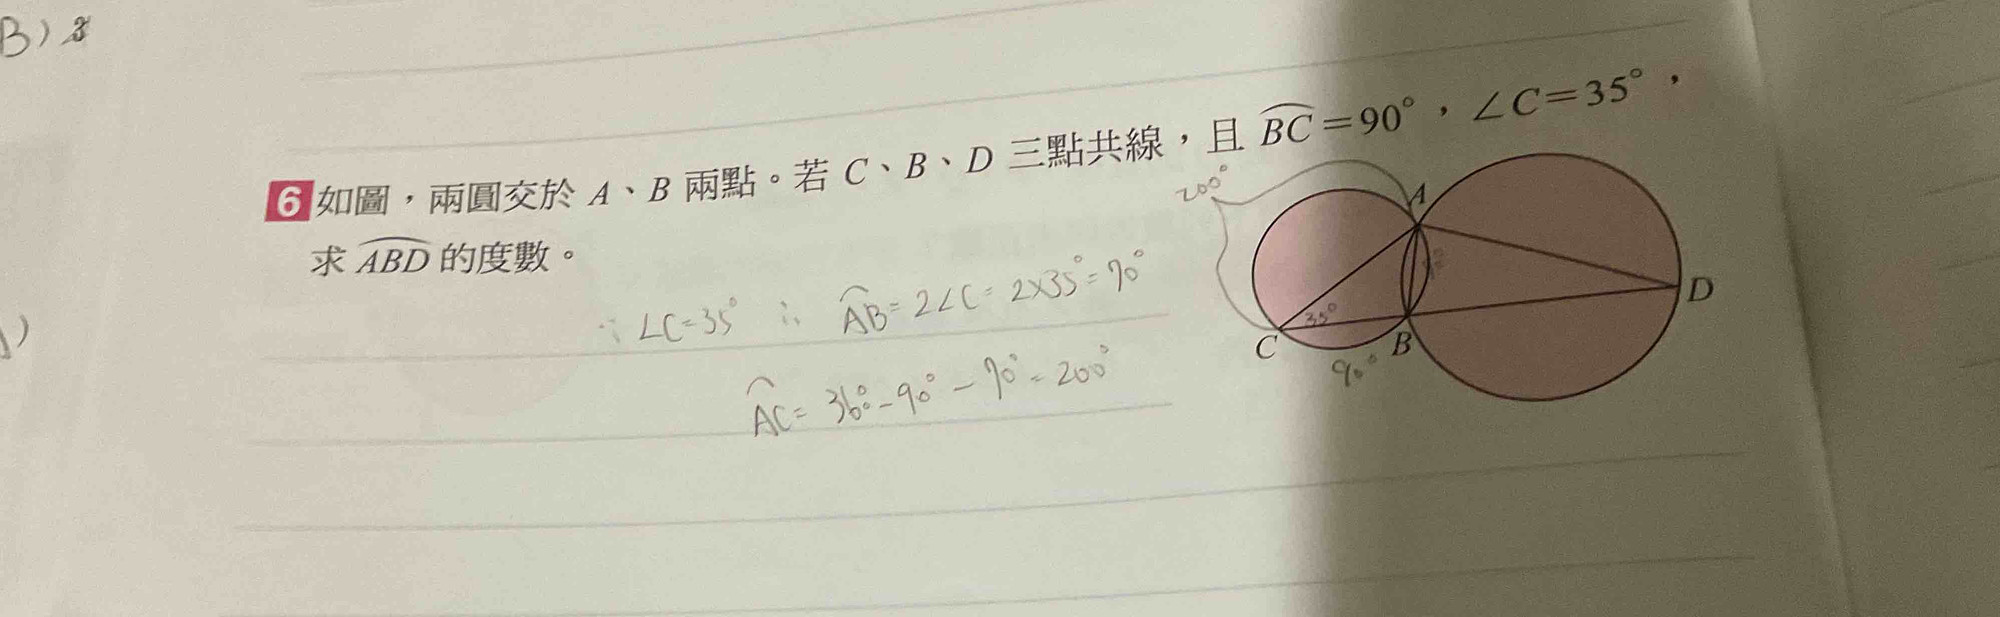 B) 3
6 如圖，兩圓交於 A、B 兩點。若 C、B、D 三點共線，且 BC＝90°，∠C＝35°，
求 ABD 的度數。
∵ ∠C=35° ∴ AB=2∠C=2×35°=70°
AC=360°-90°-70°=200°
200°
A
35°
C
B
D
90°